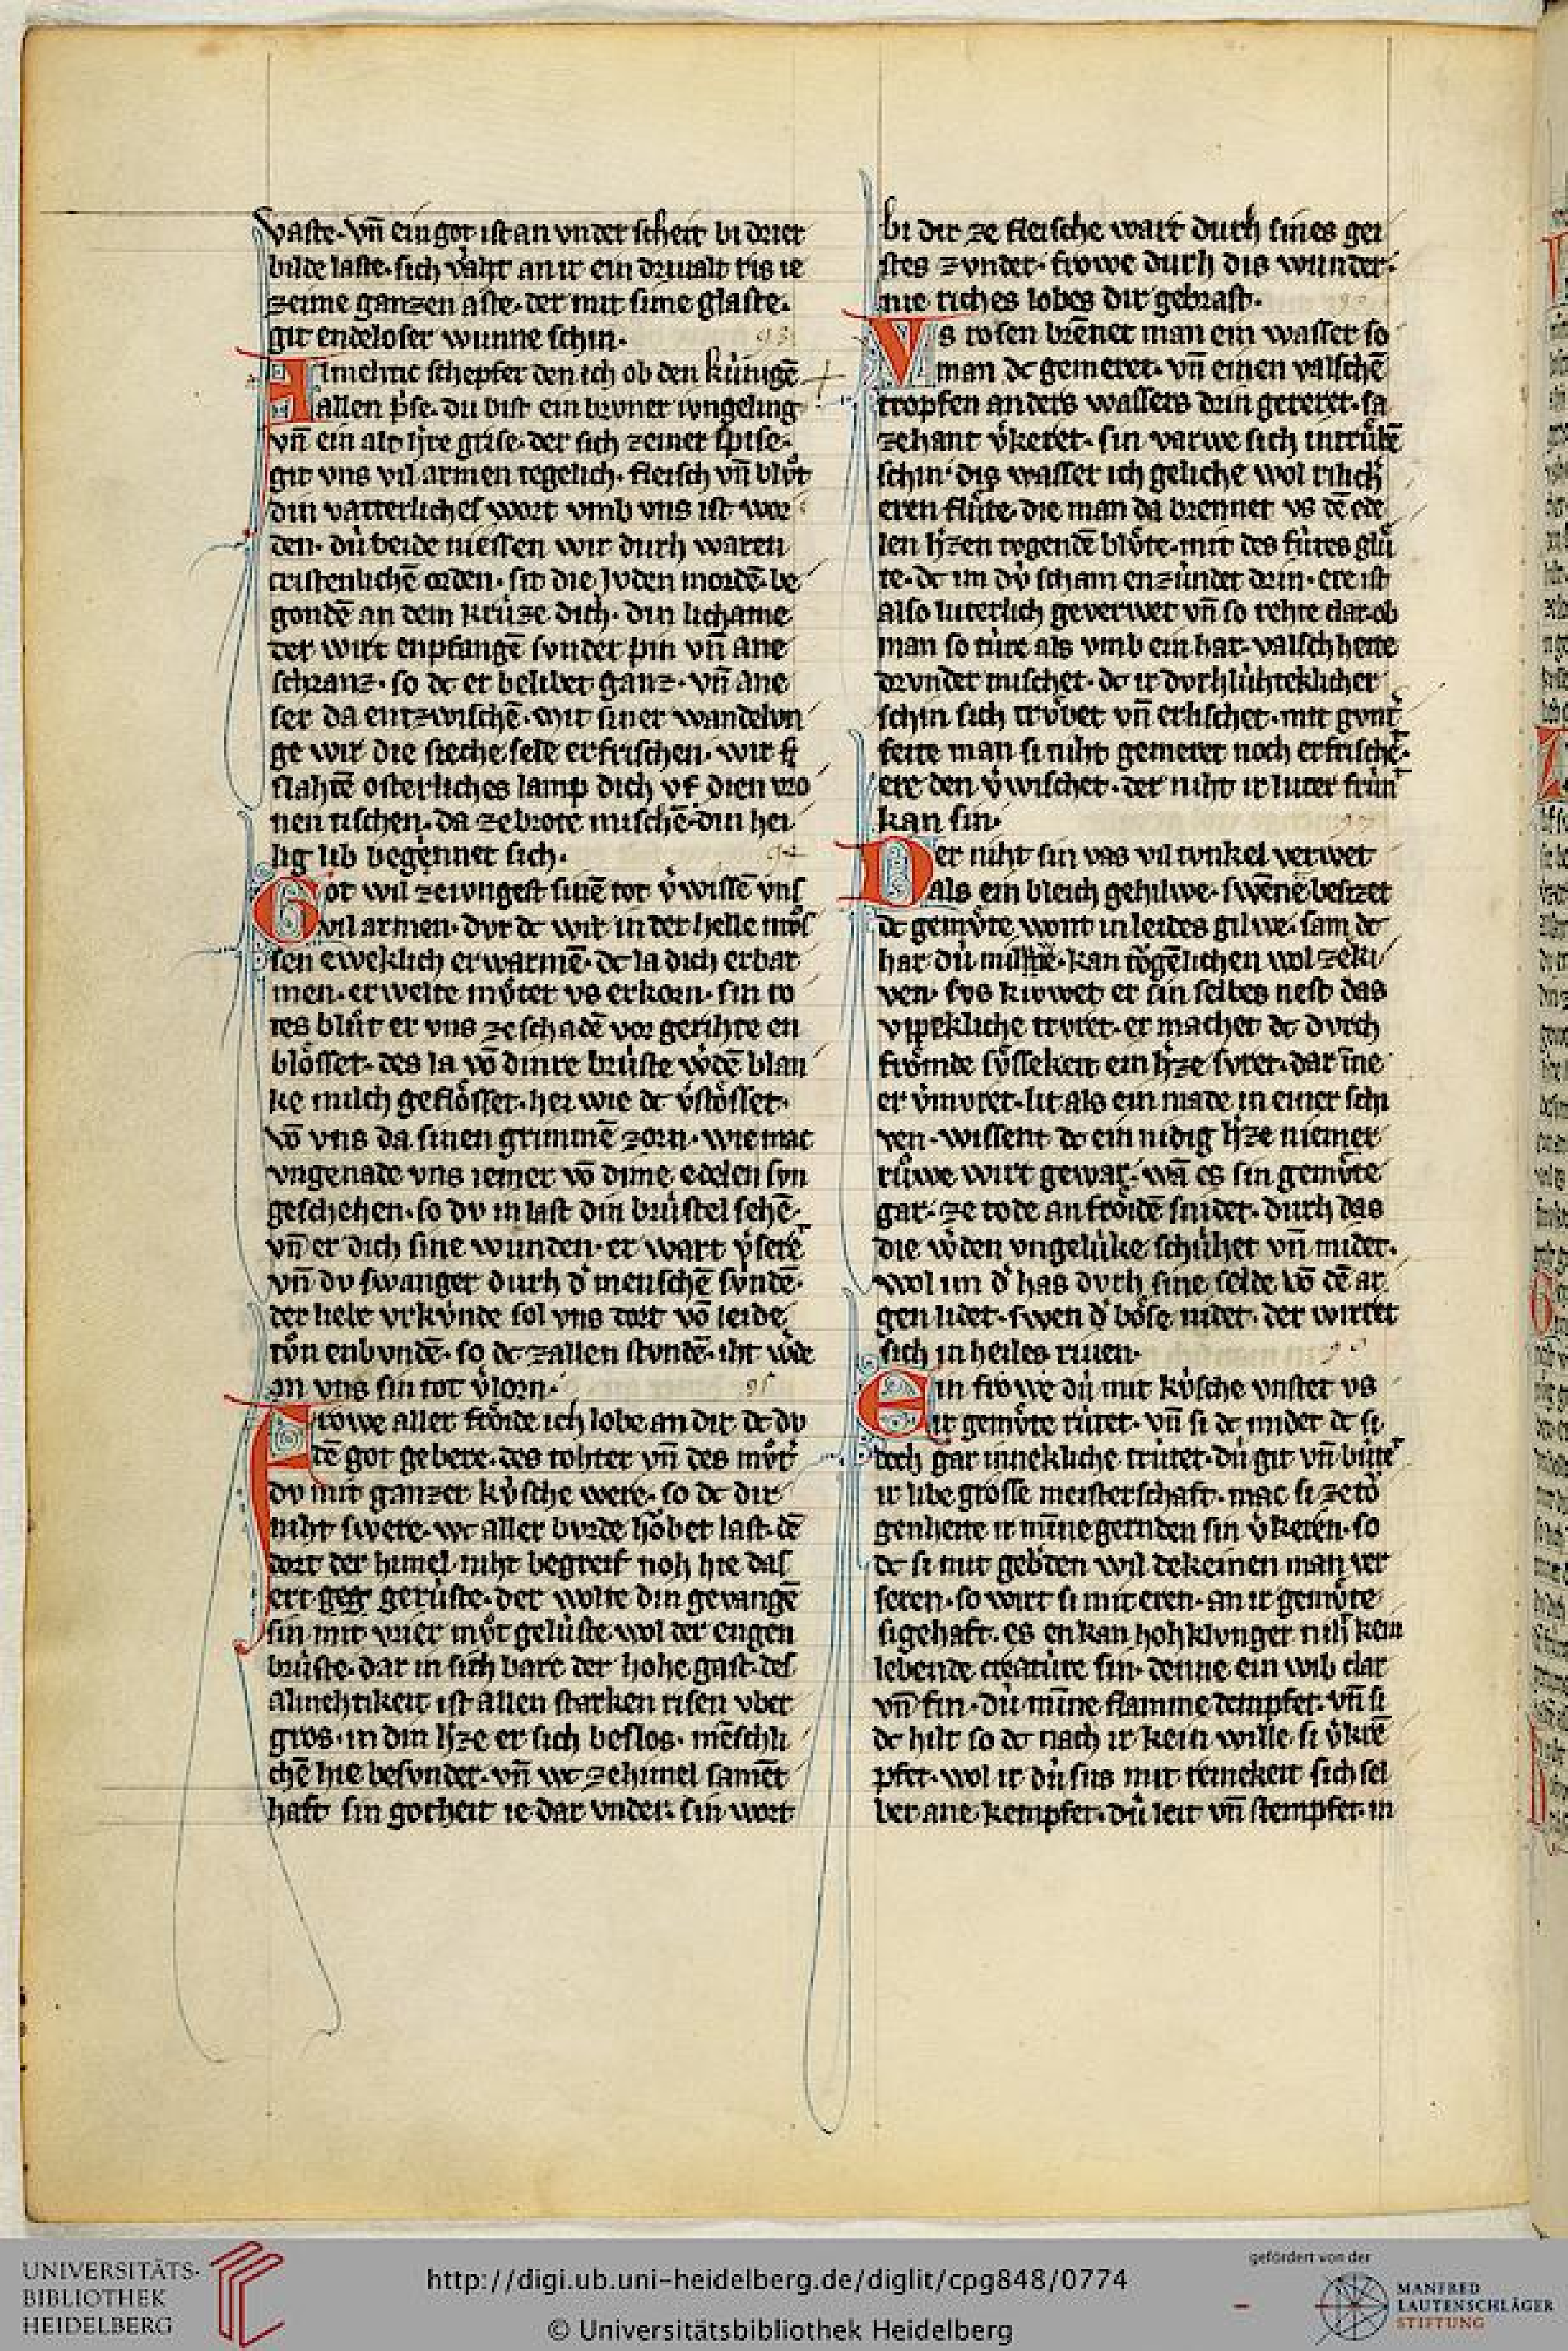 vaste. vn̄ ein got ist an vnder scheit bi drier
bilde laste. sich vaht an ir ein drivalt ris ie
zeime ganzen aste. der mit sime glaste.
git endeloser wunne schin.
93
Almehtic schepfer den ich ob den kúnigē
allen p̱se. du bist ein bruner iungeling
vn̄ ein alt h̓re grise. der sich zeiner spise.
git vns vil armen tegelich. fleisch vn̄ blůt
din vatterliches wort vmb vns ist wor
den. dú beide niessen wir durh waren
cristenlichē orden. sit die Juden mordē be
gondē an dem krúze dich. din lichame
der wirt enpfangē sunder pin vn̄ ane
schranz. so dc er belibet ganz. vn̄ ane
ser da entzwischē. mit siner wandelun
ge wir die sieche sele erfrischen. wir
slahtē osterliches lamp dich vf dien vro
nen tischen. da ze brote mischē din hei
lig lib begennet sich.
94
Got wil ze iungest sinē tot v̓wissē vns
vil armen. dur dc wir in der helle můs
sen eweklich erwarmē. dc la dich erbar
men. erwelte můter vs erkorn. sin ro
tes blůt er vns ze schadē vor gerihte en
blósset. des la vō dinre brúste w̓dē blan
ke milch geflósset. hei wie dc v̓stósset.
vō vns da sinen grimmē zorn. wie mac
vngenade vns iemer vō dime edelen sun
geschehen. so du in last din brústel sehē.
vn̄ er dich sine wunden. er wart v̓serē
vn̄ du swanger durh d̓ menschē súndē.
der liebe vrkúnde sol vns dort vō leide
tůn enbundē. so dc zallen stundē. iht w̓de
an vns sin tot v̓lorn.
95
Frowe aller fróide ich lobe an dir dc du
dē got gebere. des tohter vn̄ des můt̓
du mit ganzer kúsche were. so dc dir
niht swere. wc aller burde hōbet last. dē
dort der himel niht begreif noh hie das
ert geg gerúste. der wolte din gevangē
sin mit vrier můt geluste. wol der engen
brúste. dar in sich barc der hohe gast. des
almehtikeit ist allen starken risen vber
gros. in din h̓ze er sich beslos. mēschli
chē hie besunder. vn̄ wc ze himel samēt
haft sin gotheit ie dar vnder. sin wort
bi dir ze fleische wart durh sines gei
stes zvnder. frowe durh dis wunder.
nie riches lobes dir gebrast.
Vs rosen brēnet man ein wasser so
man dc gemeret. vn̄ einen valschē
tropfen anders wassers drin gereret. sa
zehant v̓keret. sin varwe sich in trúbē
schin. dis wasser ich geliche wol rilich̓
eren flúte. die man da brennet vs dē ede
len h̓zen tvgendē blůte. mit des fúres glů
te. dc im dú scham enzúndet drin. ere ist
also luterlich geverwet vn̄ so rehte clar. ob
man so túre als vmb ein har. valschheite
drvnder mischet. dc ir dvrhlúhteklicher
schin sich trúbet vn̄ erlischet. mit gvnt̓
feite man si niht gemeret noch erfrischē.
ere den v̓wischet. der niht ir luter frún̄t
kan sin.
Der niht sin vas vil tvnkel verwet
als ein bleich gehilwe. swēne besizet
dc gemůte wont in leides gilwe. sam dc
har dú milwe. kan tōgenlichen wol ze ki
ven. svs kiwet er sin selbes nest das
vppekliche trvret. er machet dc dvrch
frómde sússekeit ein h̓ze svret. dar īne
er v̓mvret. lit als ein made in einer schi
ven. wissent dc ein nidig h̓ze niemer
růwe wirt gewar. wā es sin gemůte
gar. ze tode an fróidē snidet. durh das
die w̓den vngelúke schúhet vn̄ midet.
wol im d̓ has dvrh sine selde vō dē ar
gen lidet. swen d̓ bóse nidet. der wirret
sich in heiles riuen.
Ein frowe dú mit kúsche vnstet vs
ir gemůte rútet. vn̄ si dc midet dc si
doch gar innekliche trútet. dú git vn̄ bútet
ir libe grosse meisterschaft. mac si ze tó
genheite ir mīne gernden sin v̓keren. so
dc si mit geb̓den wil dekeinen man ver
seren. so wirt si mit eren. an ir gemůte
sigehaft. es enkan hoh klvnger nih̓t kein
lebende creatúre sin. denne ein wib clar
vn̄ fin. dú mīne flamme dempfet. vn̄ si
dc hilt so dc nach ir kein wille si v̓krē
pfet. wol ir dú sus mit reinekeit sich sel
ber ane kempfet. dú leit vn̄ stempfet. in
UNIVERSITÄTS-
BIBLIOTHEK
HEIDELBERG
http://digi.ub.uni-heidelberg.de/diglit/cpg848/0774
© Universitätsbibliothek Heidelberg
gefördert von der
MANFRED
LAUTENSCHLÄGER
STIFTUNG